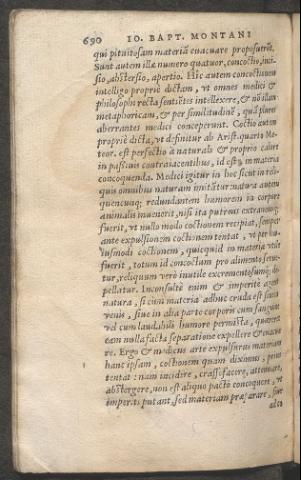 690 IO. BAPT. MONTANI
qui pituitosam materiã euacuare proposuerũt.
Sunt autem illæ numero quatuor, concoctio, inci-
sio, abstersio, apertio. Hic autem concoctionem
intelligo propriè dictam, vt omnes medici &
philosophi recta sentiẽtes intellexere, & nõ illam
metaphoricam, & per similitudinẽ, quã plures
aberrantes medici conceperunt. Coctio autem
propriè dicta, vt definitur ab Arist. quarto Me-
teor. est perfectio à naturali & proprio calore
in passiuis contraiacentibus, id est, in materia
concoquenda. Medici igitur in hoc sicut in reli-
quis omnibus naturam imitãtur: natura autem
quencunq; redundantem humorem in corpore
animalis inuenerit, nisi ita putreus extraneusq;
fuerit, vt nullo modo coctionem recipiat, semper
ante expulsionem coctionem tentat, vt per hu-
iusmodi coctionem, quicquid in materia vtile
fuerit, totum id concoctum pro alimento serue-
tur, reliquum verò inutile excrementosumq; ex-
pellatur. Inconsultè enim & imperitè ageret
natura, si cùm materia adhuc cruda est siue in
venis, siue in alia parte corporis cum sanguine
vel cum laudabili humore permista, quæreret
eam nulla facta separatione expellere & euacua-
re. Ergo & medicus arte expulsurus materiam
hanc ipsam, coctionem quam diximus, prius
tentat: nam incidere, crassefacere, attenuare,
abstergere, non est aliquo pacto concoquere, vt
imperiti putant, sed materiam præparare, siue